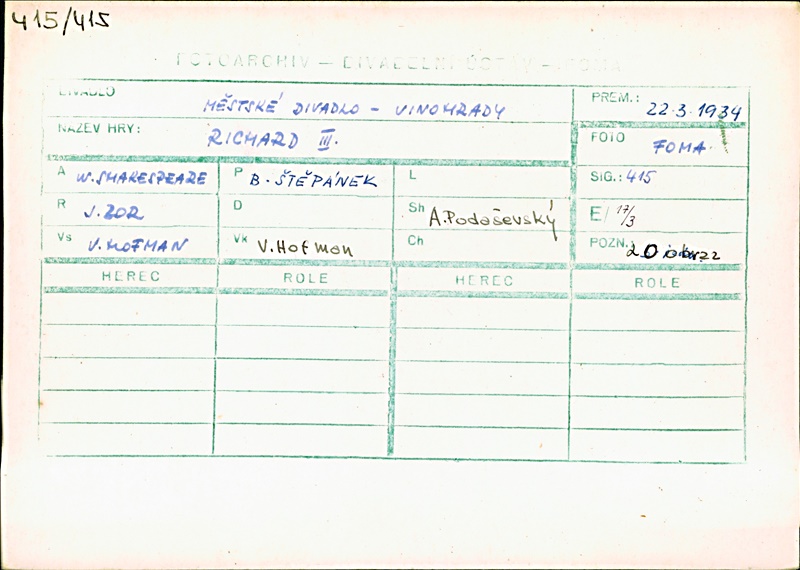 415/415
FOTOARCHIV — DIVADELNÍ ÚSTAV — FOMA
DIVADLO MĚSTSKÉ DIVADLO - VINOHRADY PREM.: 22.3.1934
NÁZEV HRY: RICHARD III. FOTO FOMA
A W. SHAKESPEARE P B. ŠTĚPÁNEK L SIG.: 415
R J. BOR D Sh A. Podoševský E/ 17/3
Vs V. HOFMAN Vk V. Hofman Ch POZN. 20
HEREC ROLE HEREC ROLE